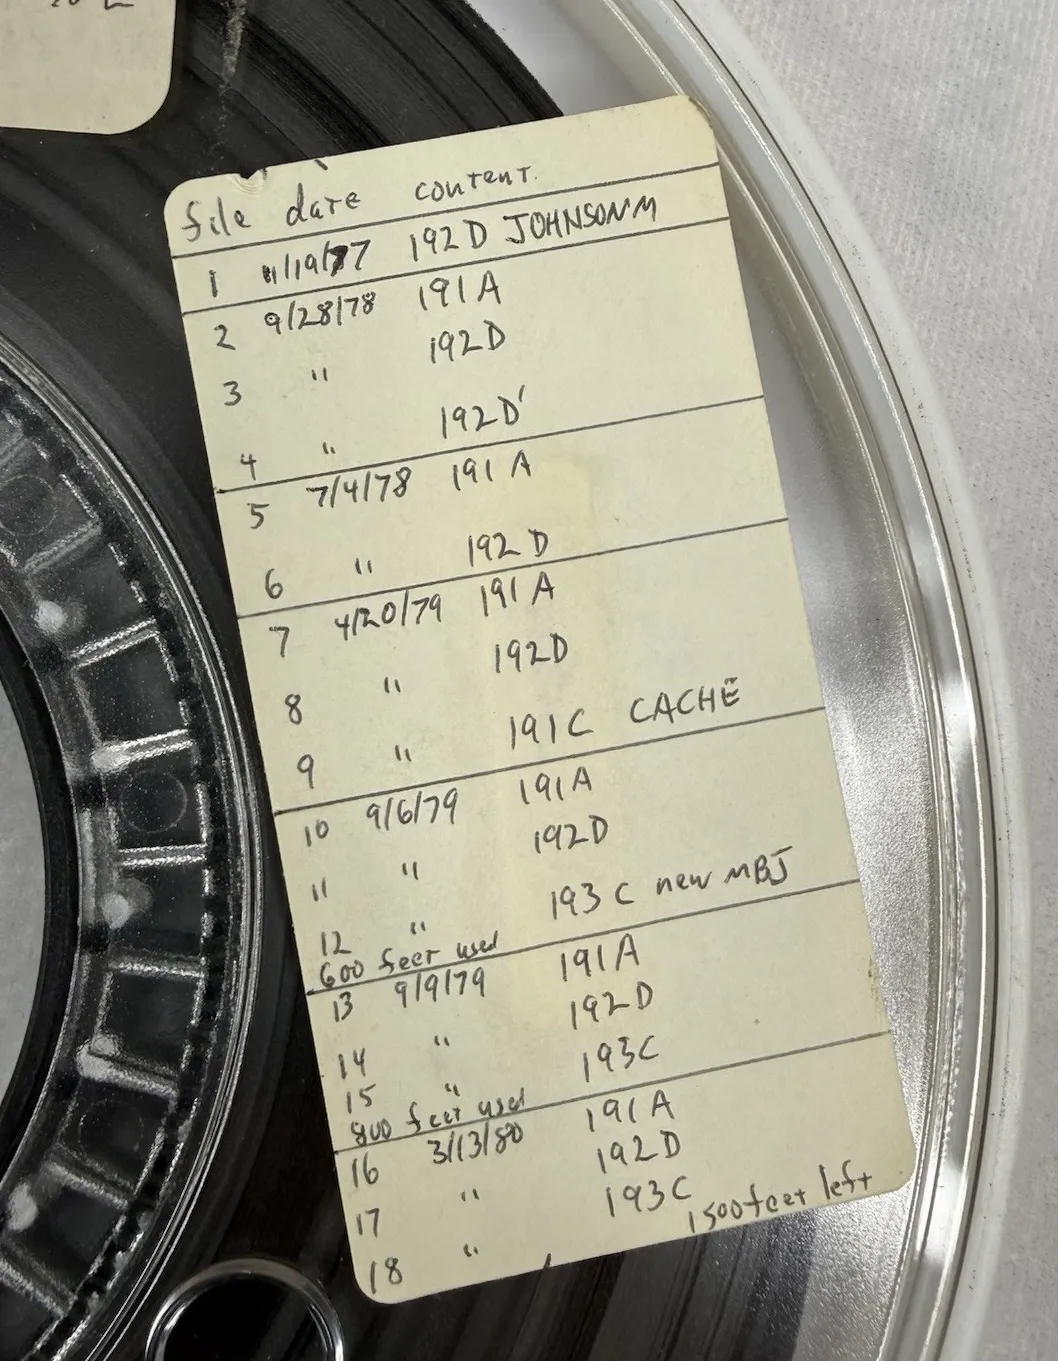 file date content.
1 11/19/77 192D JOHNSON'M
2 9/28/78 191A
3 " 192D
4 " 192D'
5 7/4/78 191A
6 " 192D
7 4/20/79 191A
8 " 192D
9 " 191C CACHE
10 9/6/79 191A
11 " 192D
12 " 193C new MBJ
600 feet used
13 9/9/79 191A
14 " 192D
15 " 193C
800 feet used
16 3/13/80 191A
17 " 192D
18 " 193C
1500 feet left